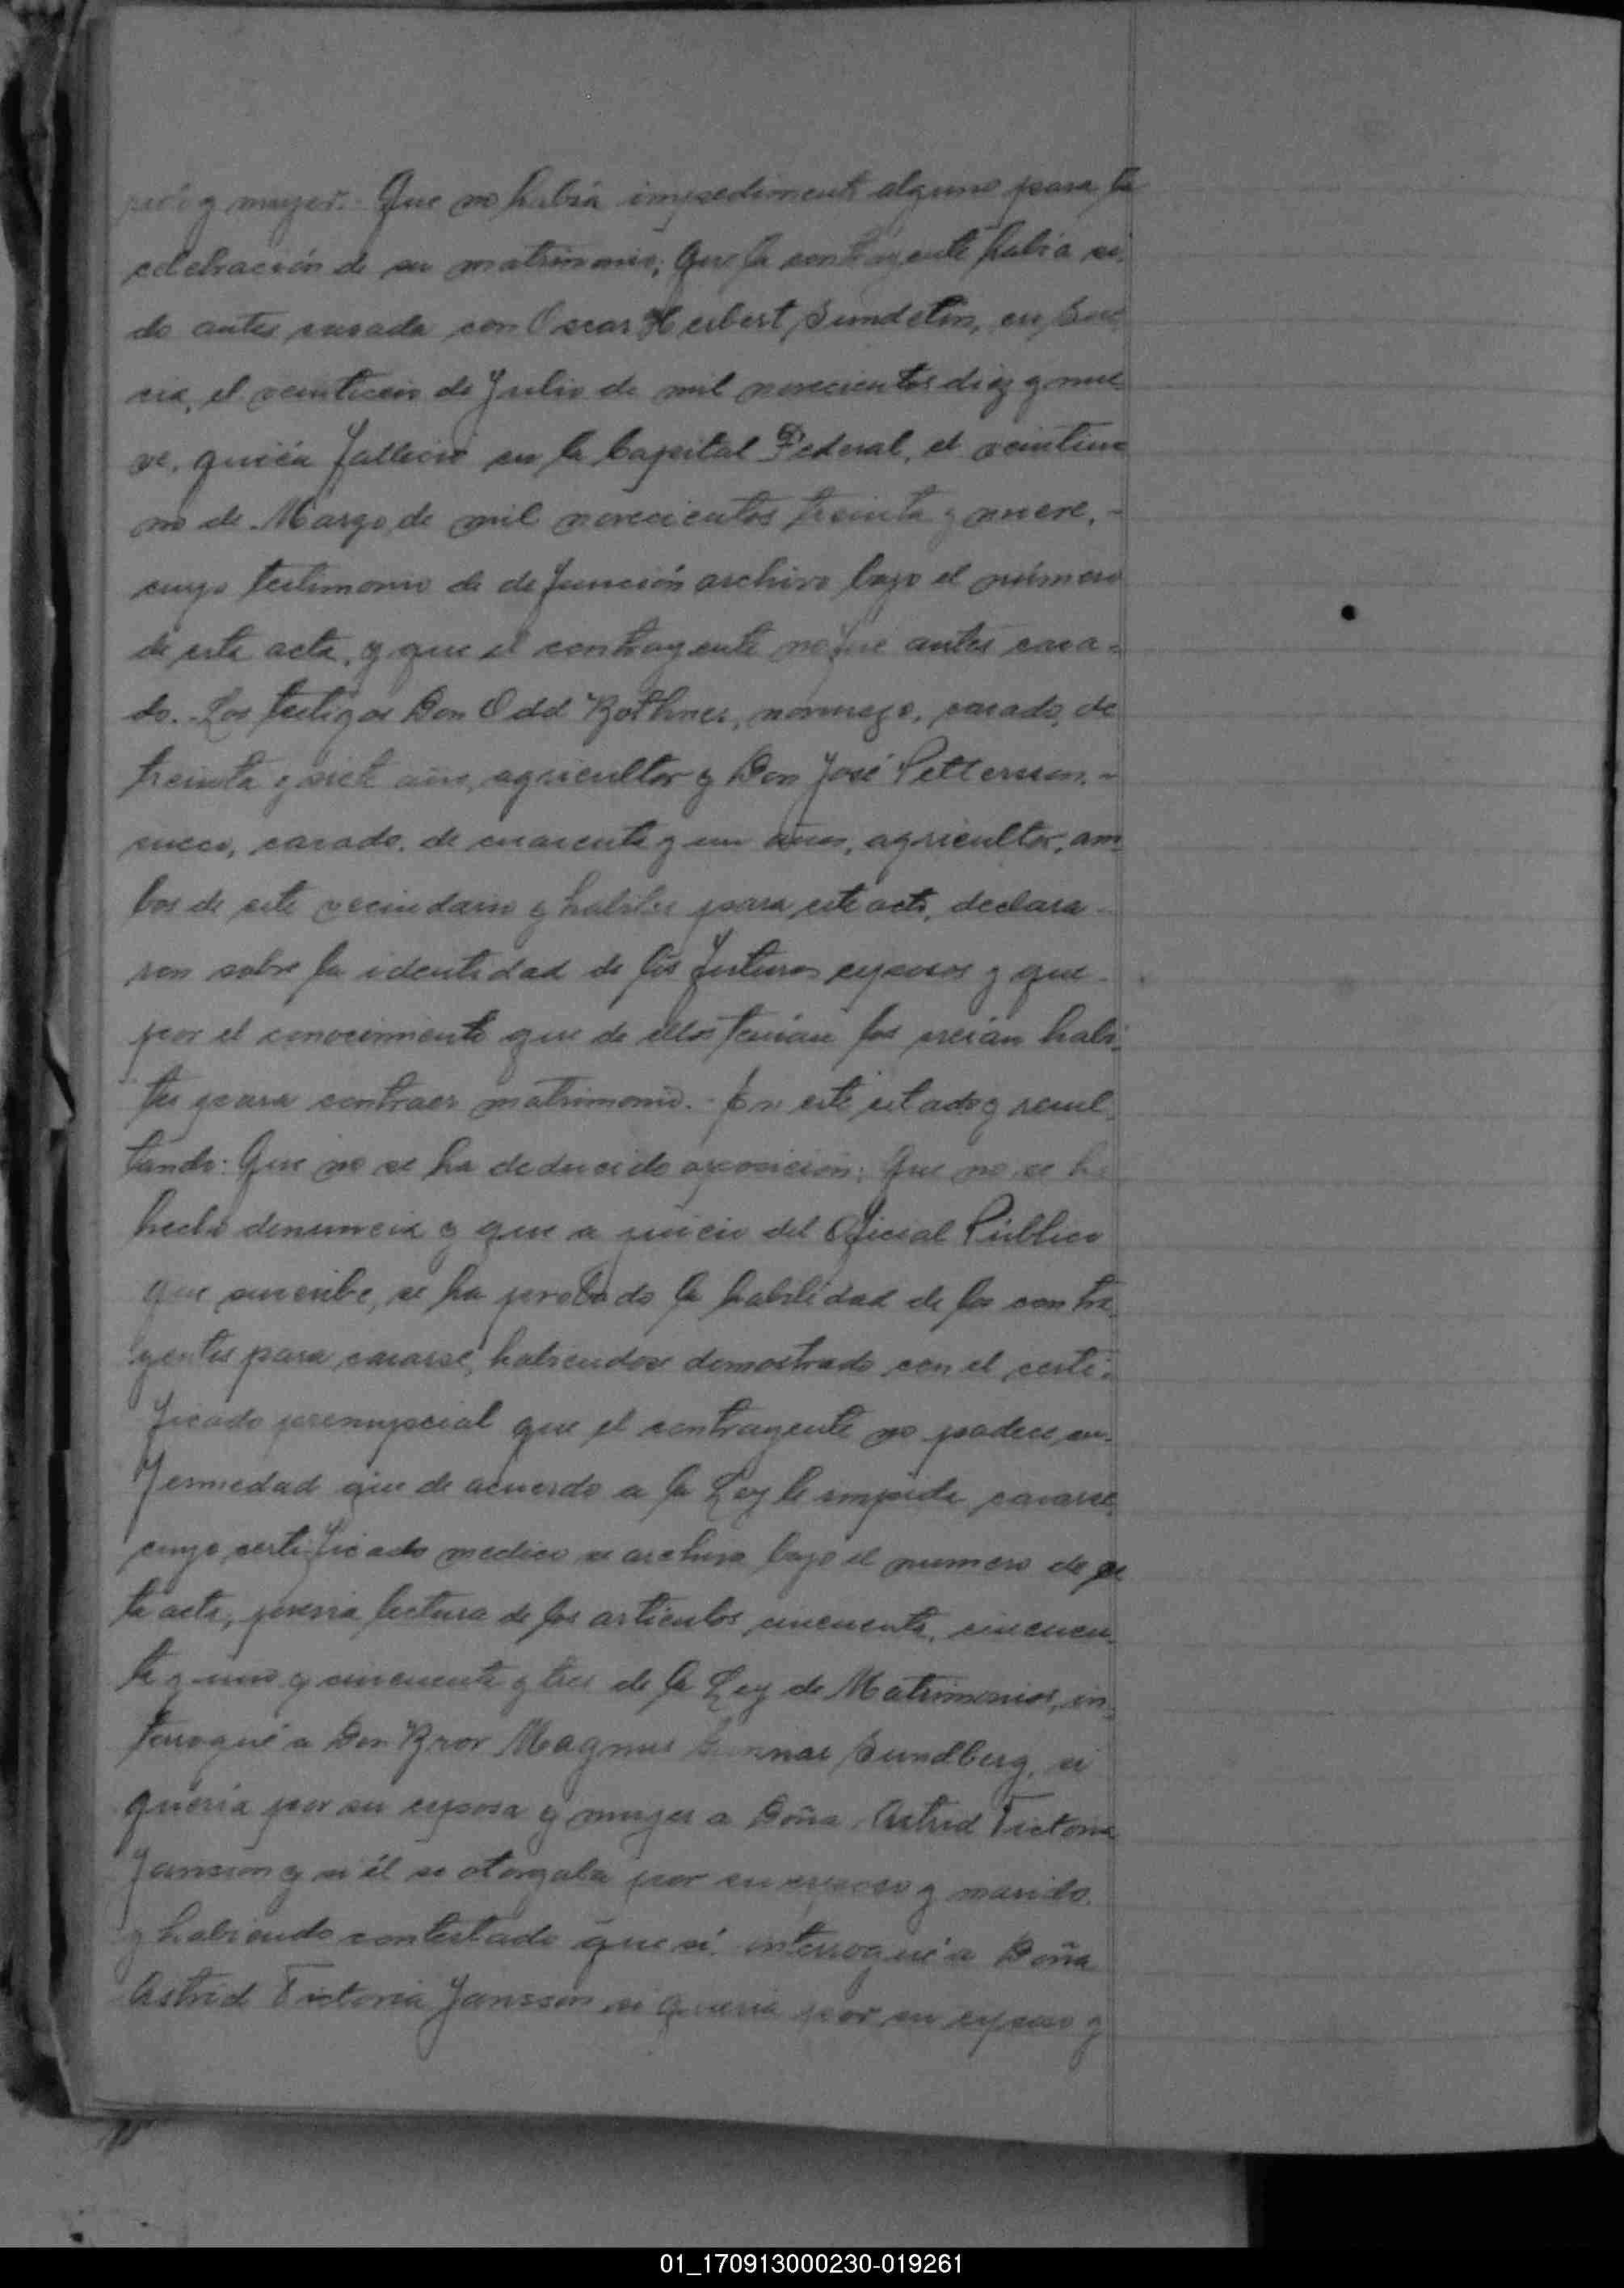 y mujer.- Que no había impedimento alguno para la
celebración de su matrimonio; Que la contrayente había si-
do antes casada con Oscar Herbert Sundelin, en Sue-
cia, el veintiseis de Julio de mil novecientos diez y nue-
ve, quién falleció en la Capital Federal, el veintiu-
no de Marzo de mil novecientos treinta y nueve,-
cuyo testimonio de defunción archivo bajo el número
de esta acta, y que el contrayente no fué antes casa-
do.- Los testigos Don Odd Bothner, noruego, casado, de
treinta y siete años, agricultor y Don José Petterson,-
sueco, casado, de cuarenta y un años, agricultor, am-
bos de este vecindario y habiles para este acto, declara-
ron sobre la identidad de los futuros esposos y que
por el conocimiento que de ellos tenían los creían habi-
les para contraer matrimonio.- En este estado y resul-
tando: Que no se ha deducido oposición; Que no se ha
hecho denuncia y que a juicio del Oficial Público
que suscribe, se ha probado la habilidad de los contra-
yentes para casarse, habiendose demostrado con el certi-
ficado prenupcial que el contrayente no padece en-
fermedad que de acuerdo a la Ley le impida casarse,
cuyo certificado medico se archiva bajo el numero de es-
ta acta, previa lectura de los articulos cincuenta, cincuen-
ta y uno y cincuenta y tres de la Ley de Matrimonios, in-
terrogué a Don Bror Magnus Gunnar Sundberg, si
quería por su esposa y mujer a Doña Astrid Victoria
Jansson y si él se otorgaba por su esposo y marido,
y habiendo contestado que sí, interrogué a Doña
Astrid Victoria Jansson si quería por su esposo y
01_170913000230-019261